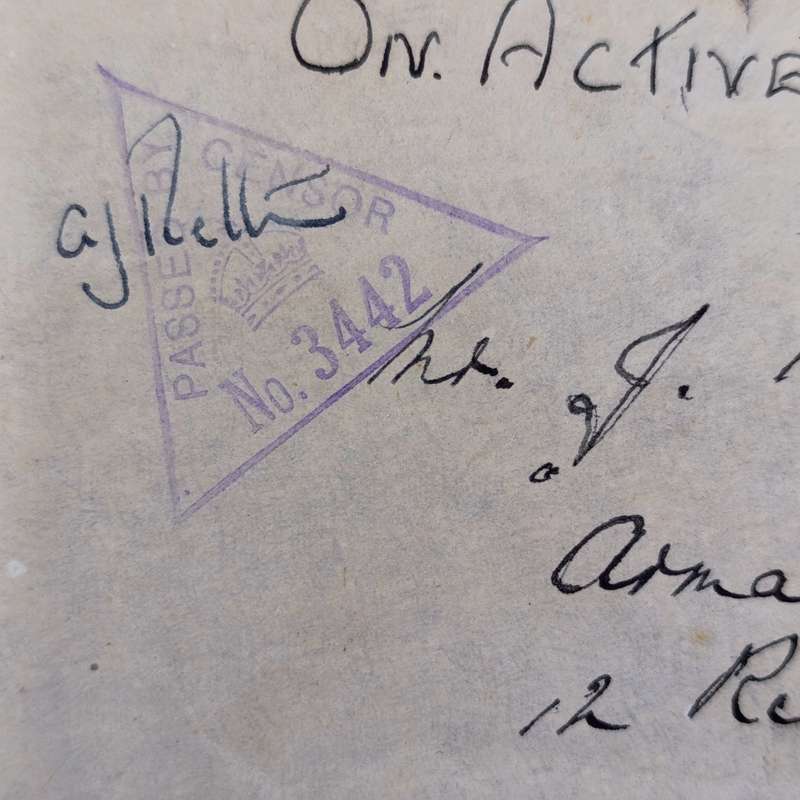 On. ACTIVE
PASSED BY CENSOR
No. 3442
Mr. J.
Arma
12 Re